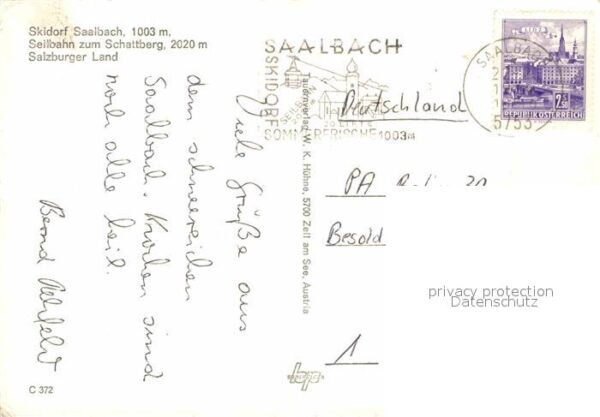 Skidorf Saalbach, 1003 m,
Seilbahn zum Schattberg, 2020 m
Salzburger Land
Viele Grüße aus
dem schneereichen
Saalbach. Knochen sind
noch alle heil.
Bernd
C 372
Tauernverlag W. K. Hühne, 5700 Zell am See, Austria
SAALBACH
SKIDORF
SEILBAHN
20 LIFTE
SOMMERFRISCHE 1003m
SAALBACH
5753
LINZ
2,50
REPUBLIK ÖSTERREICH
Deutschland
PA
Besold
1
privacy protection
Datenschutz